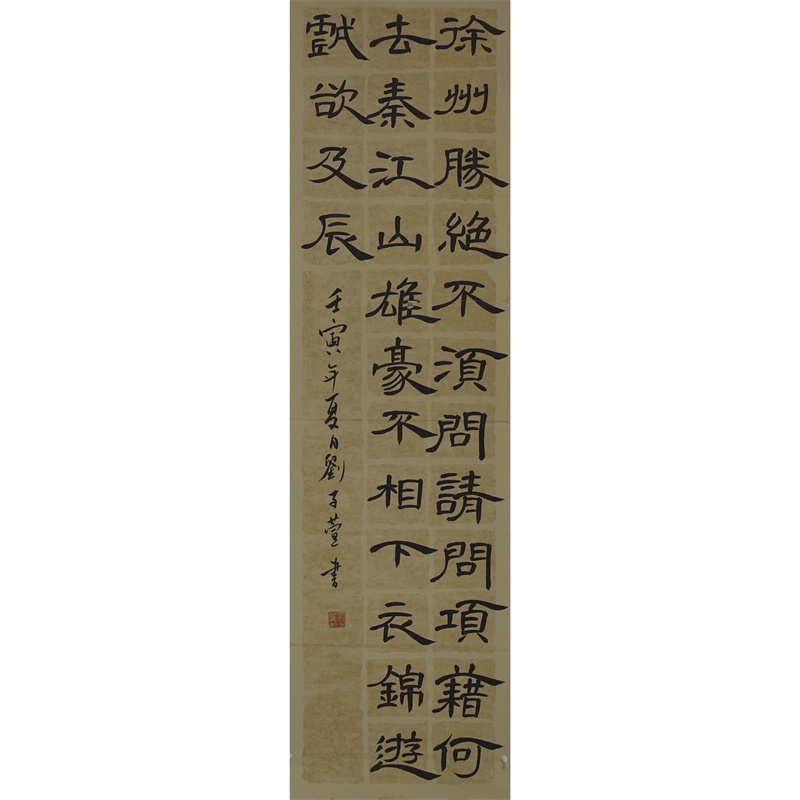 徐州勝絶不須問請問項藉何
去秦江山雄豪不相下衣錦遊
戲欲及辰
壬寅年夏月劉子萱書